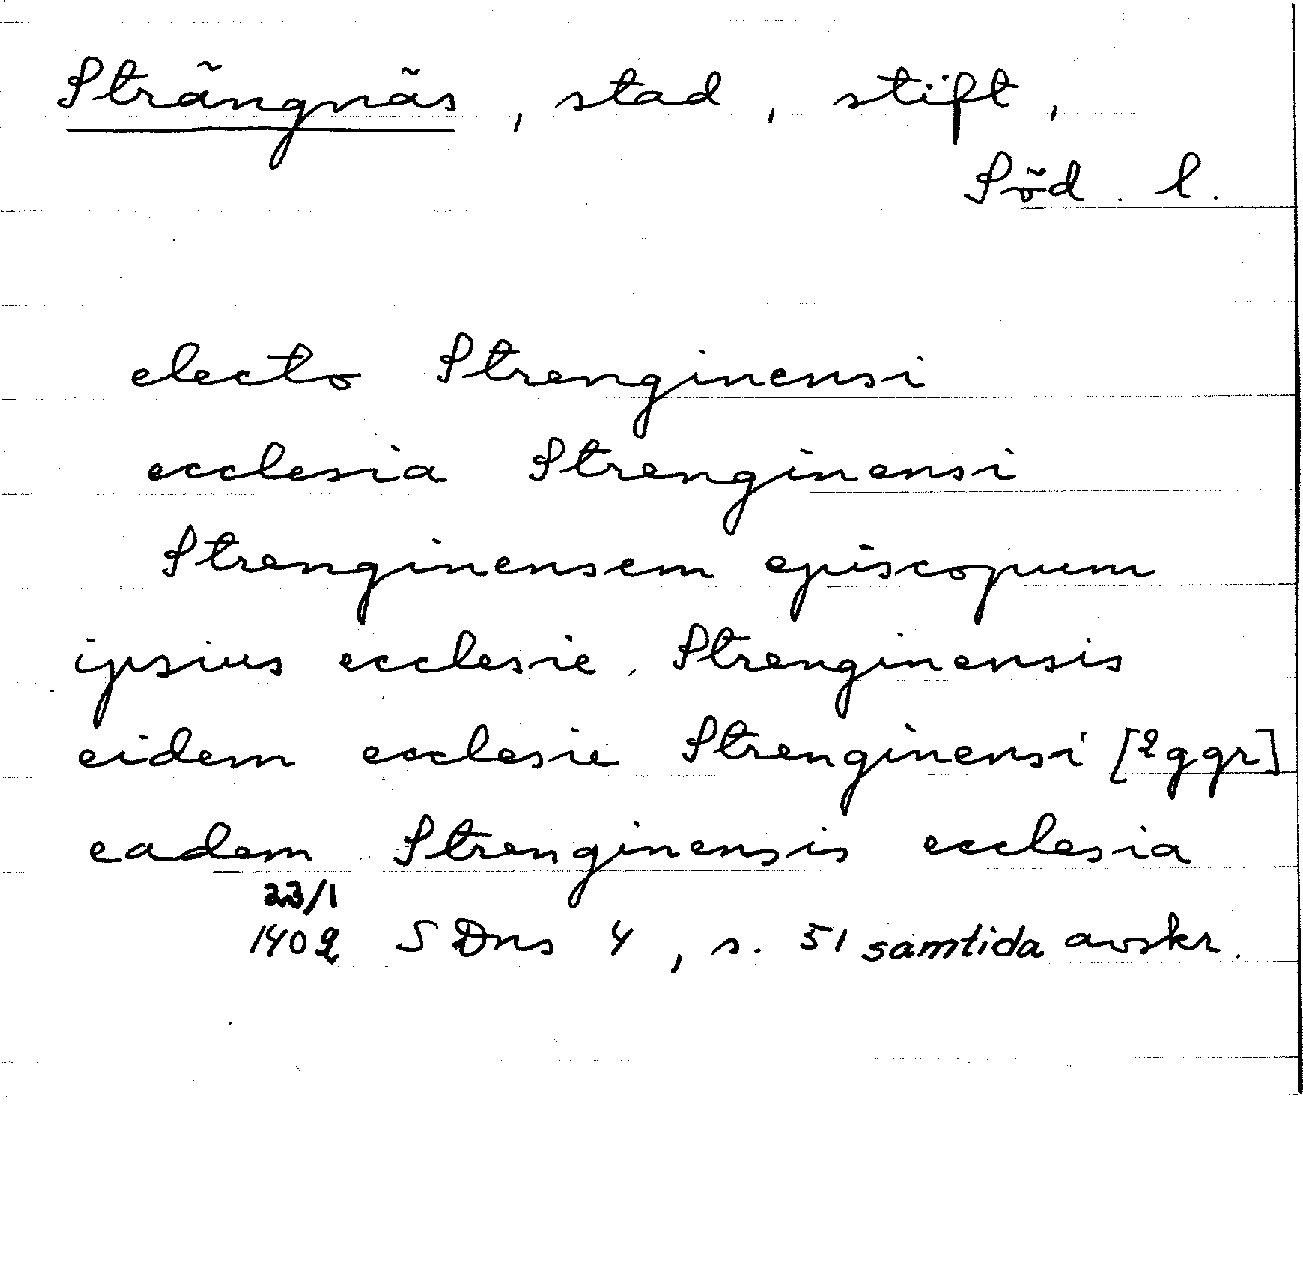 Strängnäs, stad, stift,
Söd. l.
electo Strenginensi
ecclesia Strenginensi
Strenginensem episcopum
ipsius ecclesie Strenginensis
eidem ecclesie Strenginensi [2 ggr]
eadem Strenginensis ecclesia
23/1
1402 SDns 4, s. 51 samtida avskr.